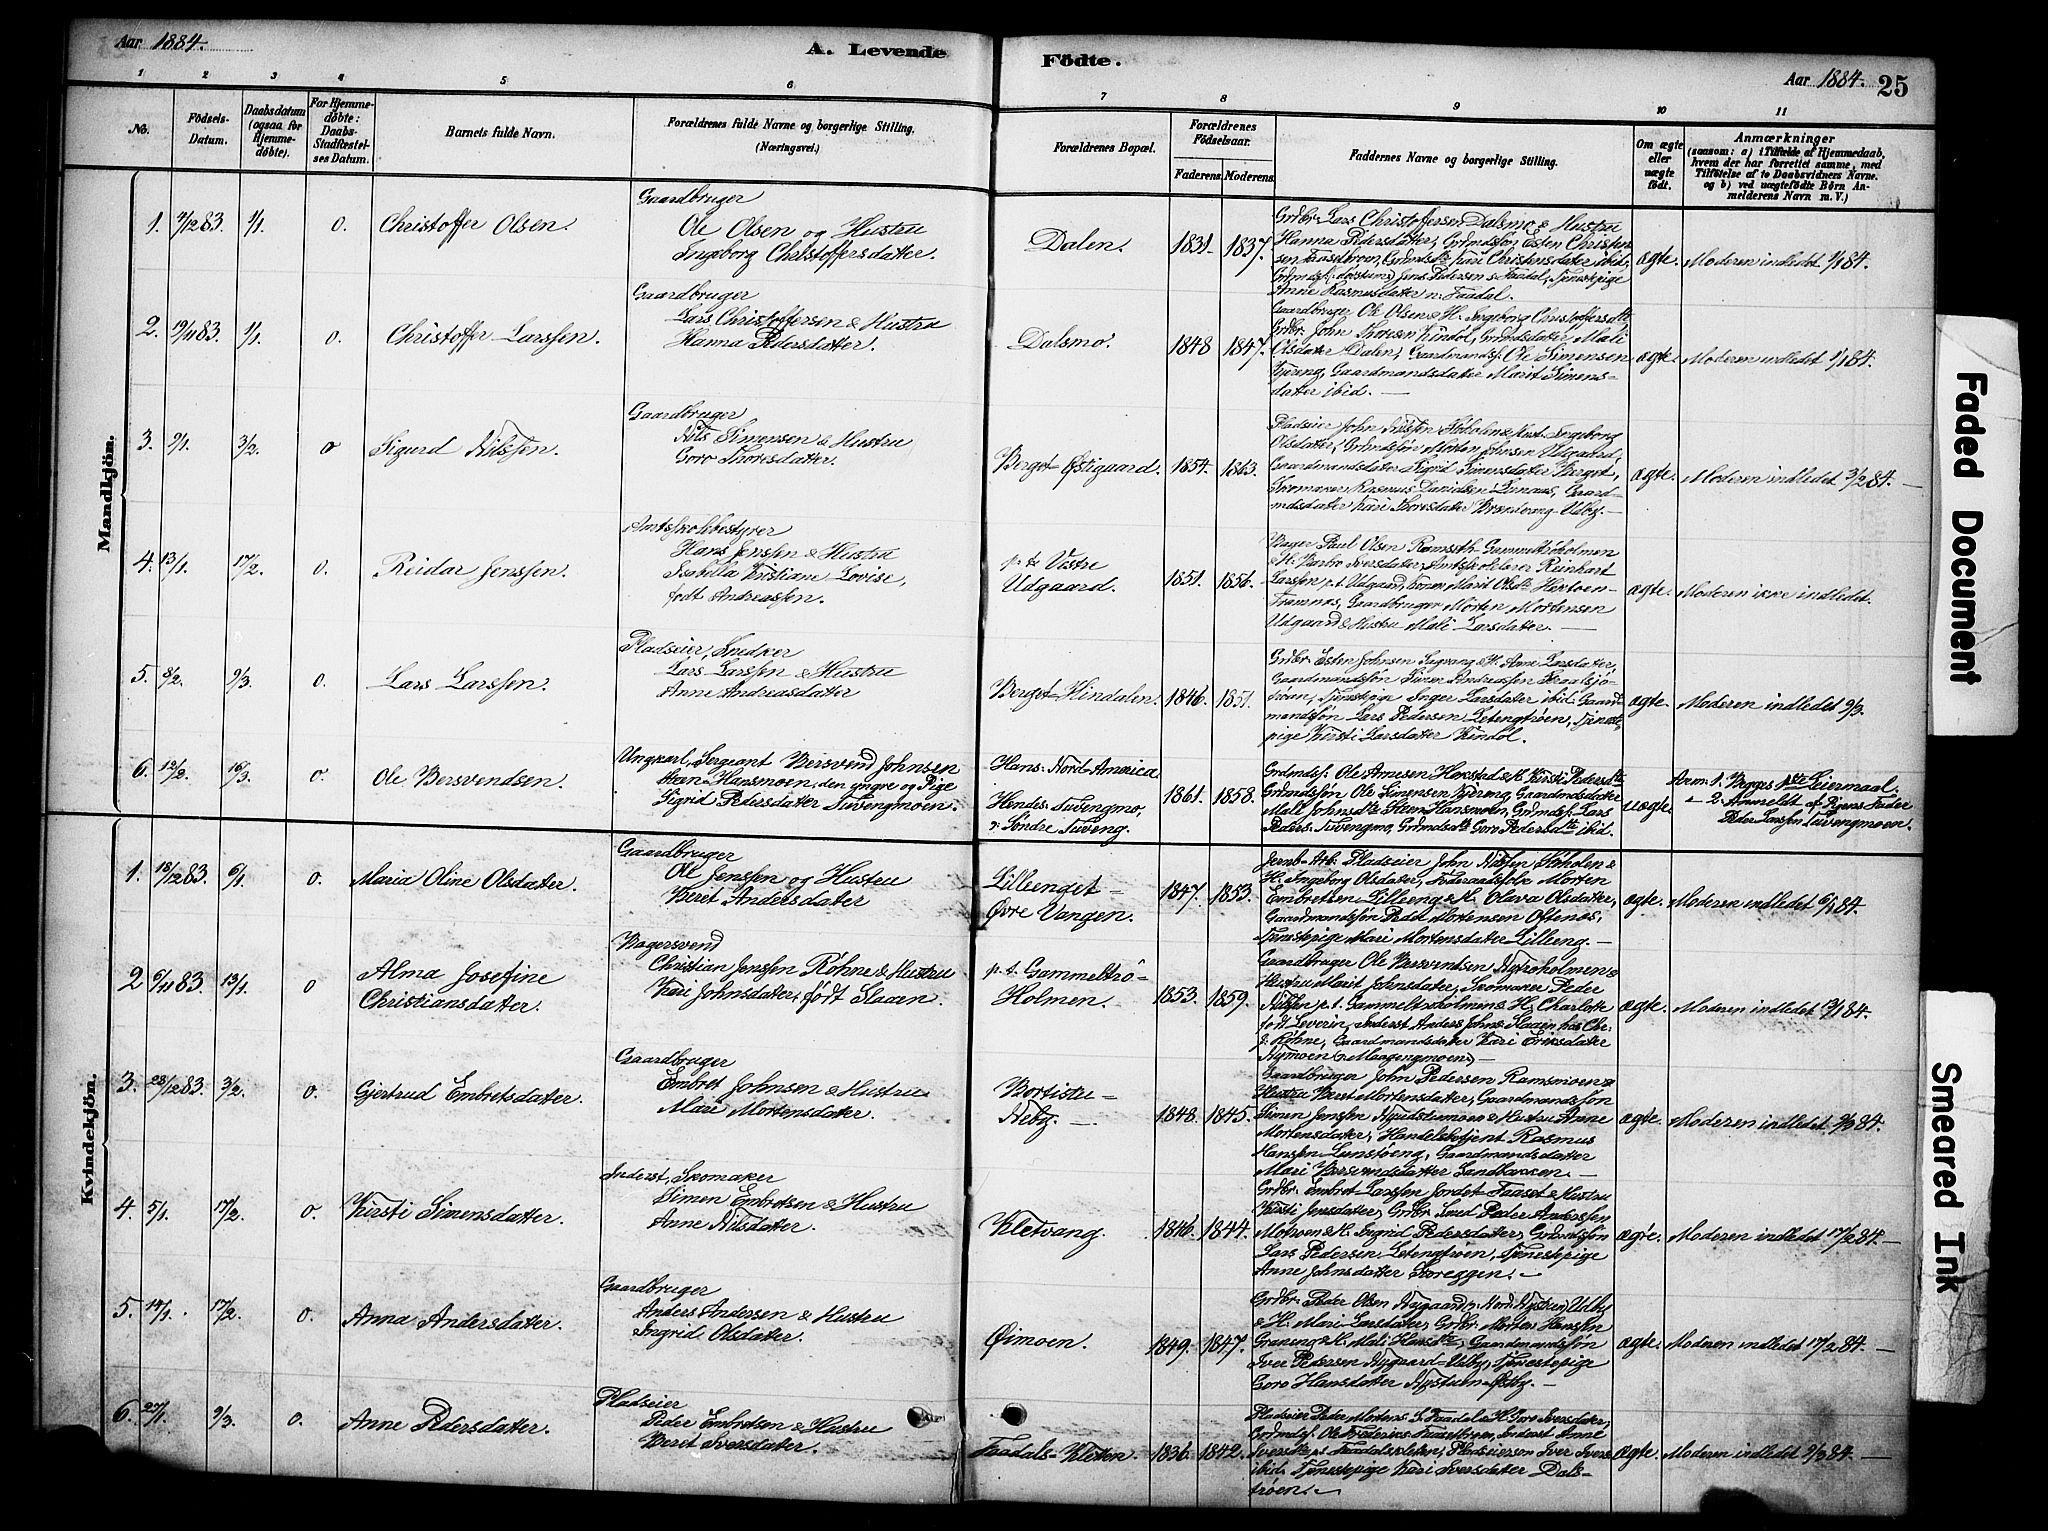 Aar 1884.
A. Levende Födte.
Aar 1884. 25
1 2 3 4 5 6 7 8 9 10 11
No.
Födsels-Datum.
Daabsdatum (ogsaa for Hjemme-døbte).
For Hjemme-døbte: Daabs-Stadfæstel-ses Datum.
Barnets fulde Navn.
Forældrenes fulde Navne og borgerlige Stilling. (Næringsvei.)
Forældrenes Bopæl.
Forældrenes Födselsaar.
Faderens. Moderens.
Faddernes Navne og borgerlige Stilling.
Om ægte eller uægte født.
Anmærkninger
(saasom: a) i Tilfælde af Hjemmedaab,
hvem der har forrettet samme, med
Tilföielse af to Daabsvidners Navne.
og b) ved uægtefödte Börn An-
melderens Navn m. V.)
Mandkjön.
1. 7/12 83. 1/1. 0. Christoffer Olsen.
Gaardbruger
Ole Olsen og Hustru
Ingeborg Christoffersdatter.
Dalen. 1831. 1837.
Grdbr. Lars Christoffersen Dalsmo & Hustru
Hanna Pedersdatter, Grdmdsøn Esten Christen-
sen Faasetbroen, Grdmdsdtr Kari Christensdatter ibid.
Jens Pedersen s. Faadal, Tjenestepige
Anne Rasmusdatter n. Faadal.
ægte. Moderen indledet 1/1 84.
2. 19/11 83. 1/1. 0. Christoffer Larssen.
Gaardbruger
Lars Christoffersen & Hustru
Hanna Pedersdatter.
Dalsmo. 1848 1847.
Gaardbruger Ole Olsen & H. Ingeborg Christoffersdtr
Grdbr. John Thoresen Kindöl, Grdmdsdatter Mali
Olsdatter Dalen, Gaardmandss. Ole Simensen
Tjering, Gaardmandsdatter Marit Simens-
datter ibid. —
ægte. Moderen indledet 1/1 84.
3. 9/1. 3/2. 0 Sigurd Nilssen.
Gaardbruger
Nils Simensen & Hustru
Goro Thoresdatter.
Berget-Østigaard. 1854. 1863.
Pladseier John Nilssen & Hust. Ingeborg
Olsdatter, Grdmdssøn Morten Udgaard,
Gaardmandsdatter Sigrid Simensdatter Berget,
Skomaker Rasmus Danielsen Lunaas, Gaard-
mdsdatter Kari Thoresdatter Brændvang-Udby. —
ægte. Moderen indledet 3/2 84. —
4. 13/1. 17/2. 0. Reidar Jenssen.
Amtsskolebestyrer
Hans Jenssen & Hustru
Isabella Kristiane Lovise,
født Andreassen.
p. t. Vestre
Udgaard. 1851. 1856.
Bager Paul Olsen Ramsøth-Gammeltrøholmen
& H. Barbro Iversdatter, Amtsskolelærer Reinhart
Larssen p.t. Udgaard, Konen Marit Olsdtr
Trønnes, Gaardbruger Morten Mortensen
Udgaard & Hustru Mali Larsdatter. —
ægte. Moderen ikke indledet.
5. 8/2. 9/3. 0. Lars Larssen.
Pladseier, Snedker
Lars Larssen & Hustru
Anne Andreasdatter
Berget-Hindalen. 1846. 1851.
Grdbr. Esten Johnsen & H. Anne Larsdatter,
Gaardmandssøn Simen Andreassen
Tjenestepige Inger Larsdatter ibid. Gaard-
mandssøn Lars Pedersen Letengtrøen, Tjeneste-
pige Kirsti Larsdatter Kindöl.
ægte. Moderen indledet 9/3.
6. 12/2. 16/3. 0. Ole Bersvendsen.
Ungkarl, Sergeant Bersvend Johnsen
Steen-Hansmoen, den yngre og Pige
Sigrid Pedersdatter Tuvengmoen.
Hans: Nord-America
Hendes: Tuvengmo,
v. Søndre Tuveng.
1861. 1858.
Grdmds. Ole Arnesen Hokstad & H. Kirsti Pedersdtr
Grdmdssøn Ole Simensen Tjering, Gaardmdsdatter
Mali Johnsdtr Steen-Hansmoen, Grdmdss. Lars
Peders. Tuvengmo, Grdmdsdtr Goro Pedersdtr ibid.
uægte. Anm: 1. Begges 1ste Leiermaal.
" 2. Anmeldt af Pigens Fader
Peder Larssen Tuvengmoen.
Kvindekjön.
1. 18/12 83. 6/1. 0. Maria Oline Olsdatter.
Gaardbruger
Ole Jenssen og Hustru
Beret Andersdatter
Lilleenget-
Øvre Vangen. 1847. 1853.
Jernb-Arb. Pladseier John Nilssen &
H. Ingeborg Olsdatter, Føderaadsfolk Morten
Embretsen Lilleeng & H. Olava Olsdatter,
Gaardmandssøn Peder Mortensen
Tjenestepige Mari Mortensdatter Lilleeng. —
ægte. Moderen indledet 6/1 84.
2 6/11 83. 13/1. 0 Alma Josefine
Christiansdatter.
Bagersvend
Christian Jenssen Røhne & Hustru
Kari Johnsdatter, født Slaaen.
p. t. Gammeltrø-
Holmen. 1853. 1859.
Gaardbruger Ole Bersvendsen Nytrøholmen &
Hustru Marit Johnsdatter, Skomaker Peder
Nilssen p. t. Gammeltrøholmen & H. Charlotte
født Leverin, Inderst Anders Johns. Slaaen hos Chr.
J. Røhne, Gaardmandsdatter Kari Eriksdatter
Nymoen
ægte. Moderen indledet 13/1 84.
3. 23/12 83. 3/2. 0. Gjertrud Embretsdatter.
Gaardbruger
Embret Johnsen & Hustru
Mari Mortensdatter.
Bortistu-
Neby. — 1848. 1845.
Gaardbruger John Pedersen Ramsmoen &
Hustru Beret Mortensdatter, Gaardmandssøn
Simen Jenssen & Hustru Anne
Mortensdatter, Handelsbetjent Rasmus
Hanssen Lunstøeng, Gaardmandsdatter
Mari Bersvendsdatter Sandbakken. —
ægte. Moderen indledet 3/2 84.
4. 5/1. 17/2. 0. Kirsti Simensdatter.
Inderst, Skomaker
Simen Embretsen & Hustru
Anne Nilsdatter.
Kletvang. 1846. 1844.
Grdbr. Embret Larssen Jordet-Faaset & Hustru
Kirsti Jensdatter, Grdbr. Smed Peder Anderssen
Motroen & H. Ingrid Pedersdatter, Grdmdssøn
Lars Pedersen Letengtrøen, Tjenestepige
Anne Johnsdatter Storeggen. —
ægte. Moderen indledet 17/2 84. —
5. 14/1. 17/2. 0. Anna Andersdatter.
Gaardbruger
Anders Andersen & Hustru
Ingrid Olsdatter.
Øimoen. 1849. 1847.
Grdbr. Peder Olsen Nygaard, Udby
& H. Mari Larsdatter, Grdbr. Morten Hanssen
Græseng & H. Mali Hansdtr, Gaardmandssøn
Iver Pedersen Nygaard-Udby, Tjenestepige
Goro Hansdatter Nystuen-Østby. —
ægte. Moderen indledet 17/2 84. —
6. 27/1. 9/3. 0. Anne Pedersdatter.
Pladseier
Peder Embretsen & Hustru
Beret Iversdatter.
Faadals-Kletten. 1836. 1842.
Pladseier Peder Mortens. S. Faadal & H. Goro Iversdatter,
Grdmdss. Ole Frederiks. Inderst Anne
Iversdtr p. Faadalskletten, Pladseierson Iver Ivers.
ibid. Tjenestepige Kari Iversdatter Dals-
trøen. —
ægte. Moderen indledet 9/3 84. —
Faded Document
Smeared Ink